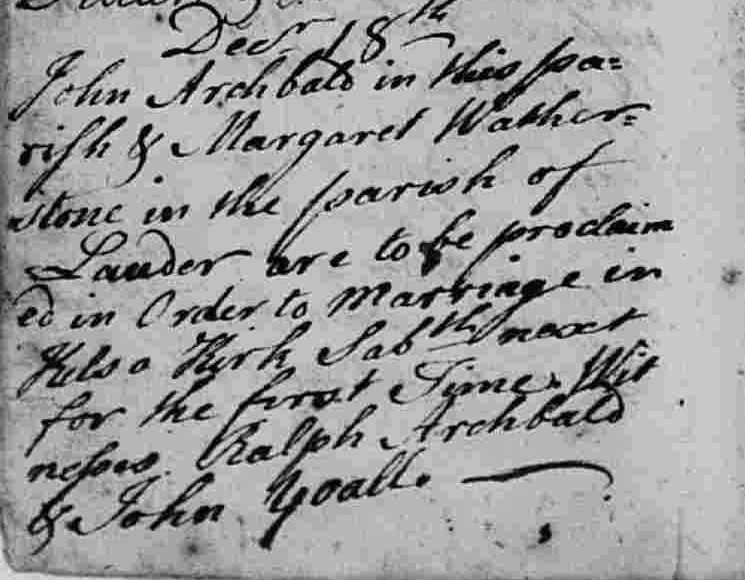 Decr 18th
John Archbald in this pa=
rish & Margaret Wather=
stone in the parish of
Lauder are to be proclaim
ed in Order to marriage in
Kelso Kirk Sabth next
for the first Time. Wit
nesses Ralph Archbald
& John Yoall.